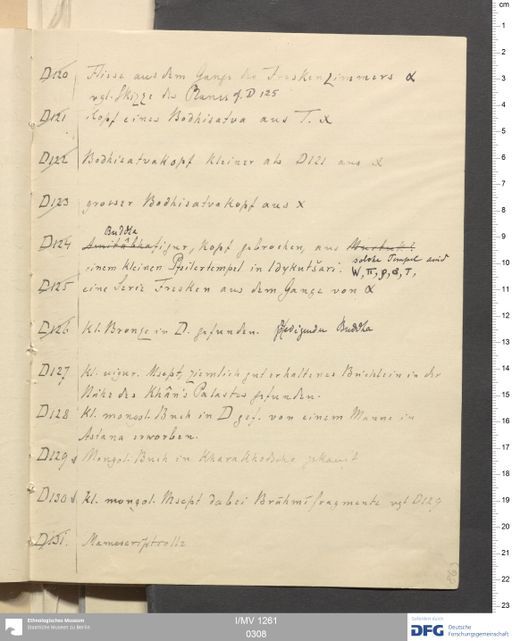 D120 Fliese aus dem Gange des Freskenzimmers α
vgl. Skizze des Raumes f. D 125
D121 Kopf eines Bodhisatva aus T. α
D122 Bodhisatvakopf kleiner als D121 aus α
D123 grosser Bodhisatvakopf aus α
Buddha
D124 Amitâbhafigur, Kopf gebrochen, aus
einem kleinen Pfeilertempel in Idykutšari. solche Tempel sind
W, π, φ, α, T.
D125 eine Serie Fresken aus dem Gange von α
D126 kl. Bronze in D. gefunden. Predigender Buddha
D127 kl. uigur. Mscpt, ziemlich gut erhaltenes Büchlein in der
Nähe des Khân's Palastes gefunden.
D128 kl. mongol. Buch in D gef. von einem Manne in
Astana erworben.
D129 Mongol. Buch in Kharakhodscho gekauft
D130 kl. mongol. Mscpt dabei Brâhmîfragmente vgl. D129
D131. Manuscriptrolle
cm
1
2
3
4
5
6
7
8
9
10
11
12
13
14
15
16
17
18
19
20
21
22
23
Ethnologisches Museum
Staatliche Museen zu Berlin
I/MV 1261
0308
DFG Deutsche
Forschungsgemeinschaft